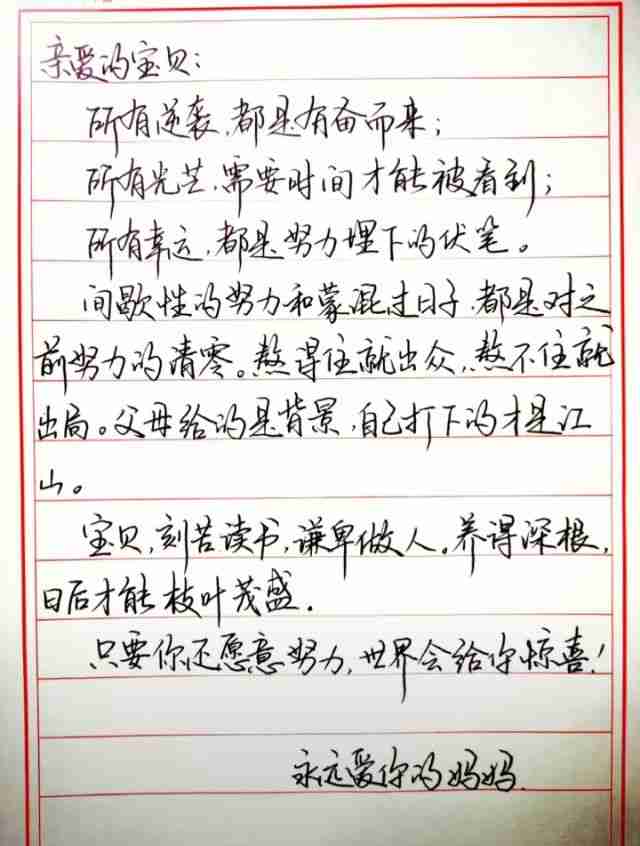 亲爱的宝贝:
所有逆袭,都是有奋而来;
所有光芒,需要时间才能被看到;
所有幸运,都是努力埋下的伏笔。
间歇性的努力和蒙混过日子,都是对之
前努力的清零。熬得住就出众,熬不住就
出局。父母给的是背景,自己打下的才是江
山。
宝贝,刻苦读书,谦卑做人。养得深根,
日后才能枝叶茂盛.
只要你还愿意努力,世界会给你惊喜!
永远爱你的妈妈.